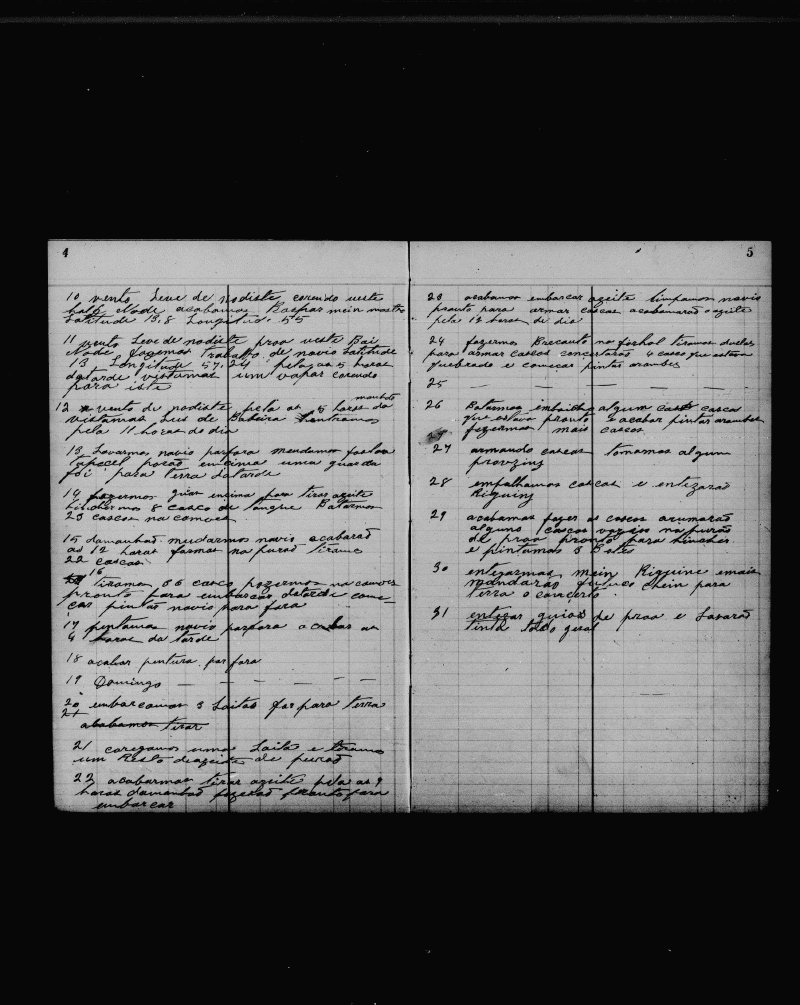 4
10 vento Leve de nodiste corendo ueste
half Node acabamos Raspar mein mastro
Latitude 13.8 Longitude 55
11 vento Leve de nodiste proa ueste Bai
Node fazemos Trabalho de navio Latitude
13 Longitude 57.24 pelas as 5 horas
datarde vistamos um vapor corendo
para iste
12 vento de nodiste pela as 5 horas da manhã
vistamos Lus de Babeira hentramos
pela 11 horas do dia
13 Lavarmos navio parfora mendamos
porão encima uma guarda
foi para terra datarde
14 fazermos guias incima para tirar azeite
hinchermos 8 casco de tangue Batarmos
23 cascos na comoes
15 damanhã mudarmos navio acabarão
as 12 horas formos na purão tiramos
22 cascos
16
tiramos 86 casco fazermos na convés
pronto para embarcar datarde come-
çar pintar navio para fora
17 pintamos navio parfora acabar as
4 horas da tarde
18 acabar pintura parfora
19 Domingo — — —
20 embarcamos 3 Laitas foi para terra
21
acabamos tirar
21 caregamos uma Laita e tiramos
um Resto deazeite de purão
22 acabarmos tirar azeite pela as 9
horas damanhã fazerão pronto para
embarcar
5
23 acabamos embarcar azeite limpamos navio
pronto para armar cascos acabamos o azeite
pela 12 horas de dia
24 fazermos na foshol tiramos duelas
para armar cascos concertarão 4 casco que estava
quebrado e começar pintar arombes
25 — — — — — —
26 Batarmos algum casco cascos
que estava pronto e acabar pintar arombes
fazermos mais cascos
27
27 armando cascos tomamos algum
28 empalhamos cascos e entezarão
Riguing
29 acabamos fazer as cascos arumarão
alguns cascos vazios na purão
de proa pronto para hincher
e pintamos 3 Botes
30 entezarmos mein Riguine e mais
mandarão chein para
terra o concerto
31 entezar guias de proa e Lavarão
tinta todo geral